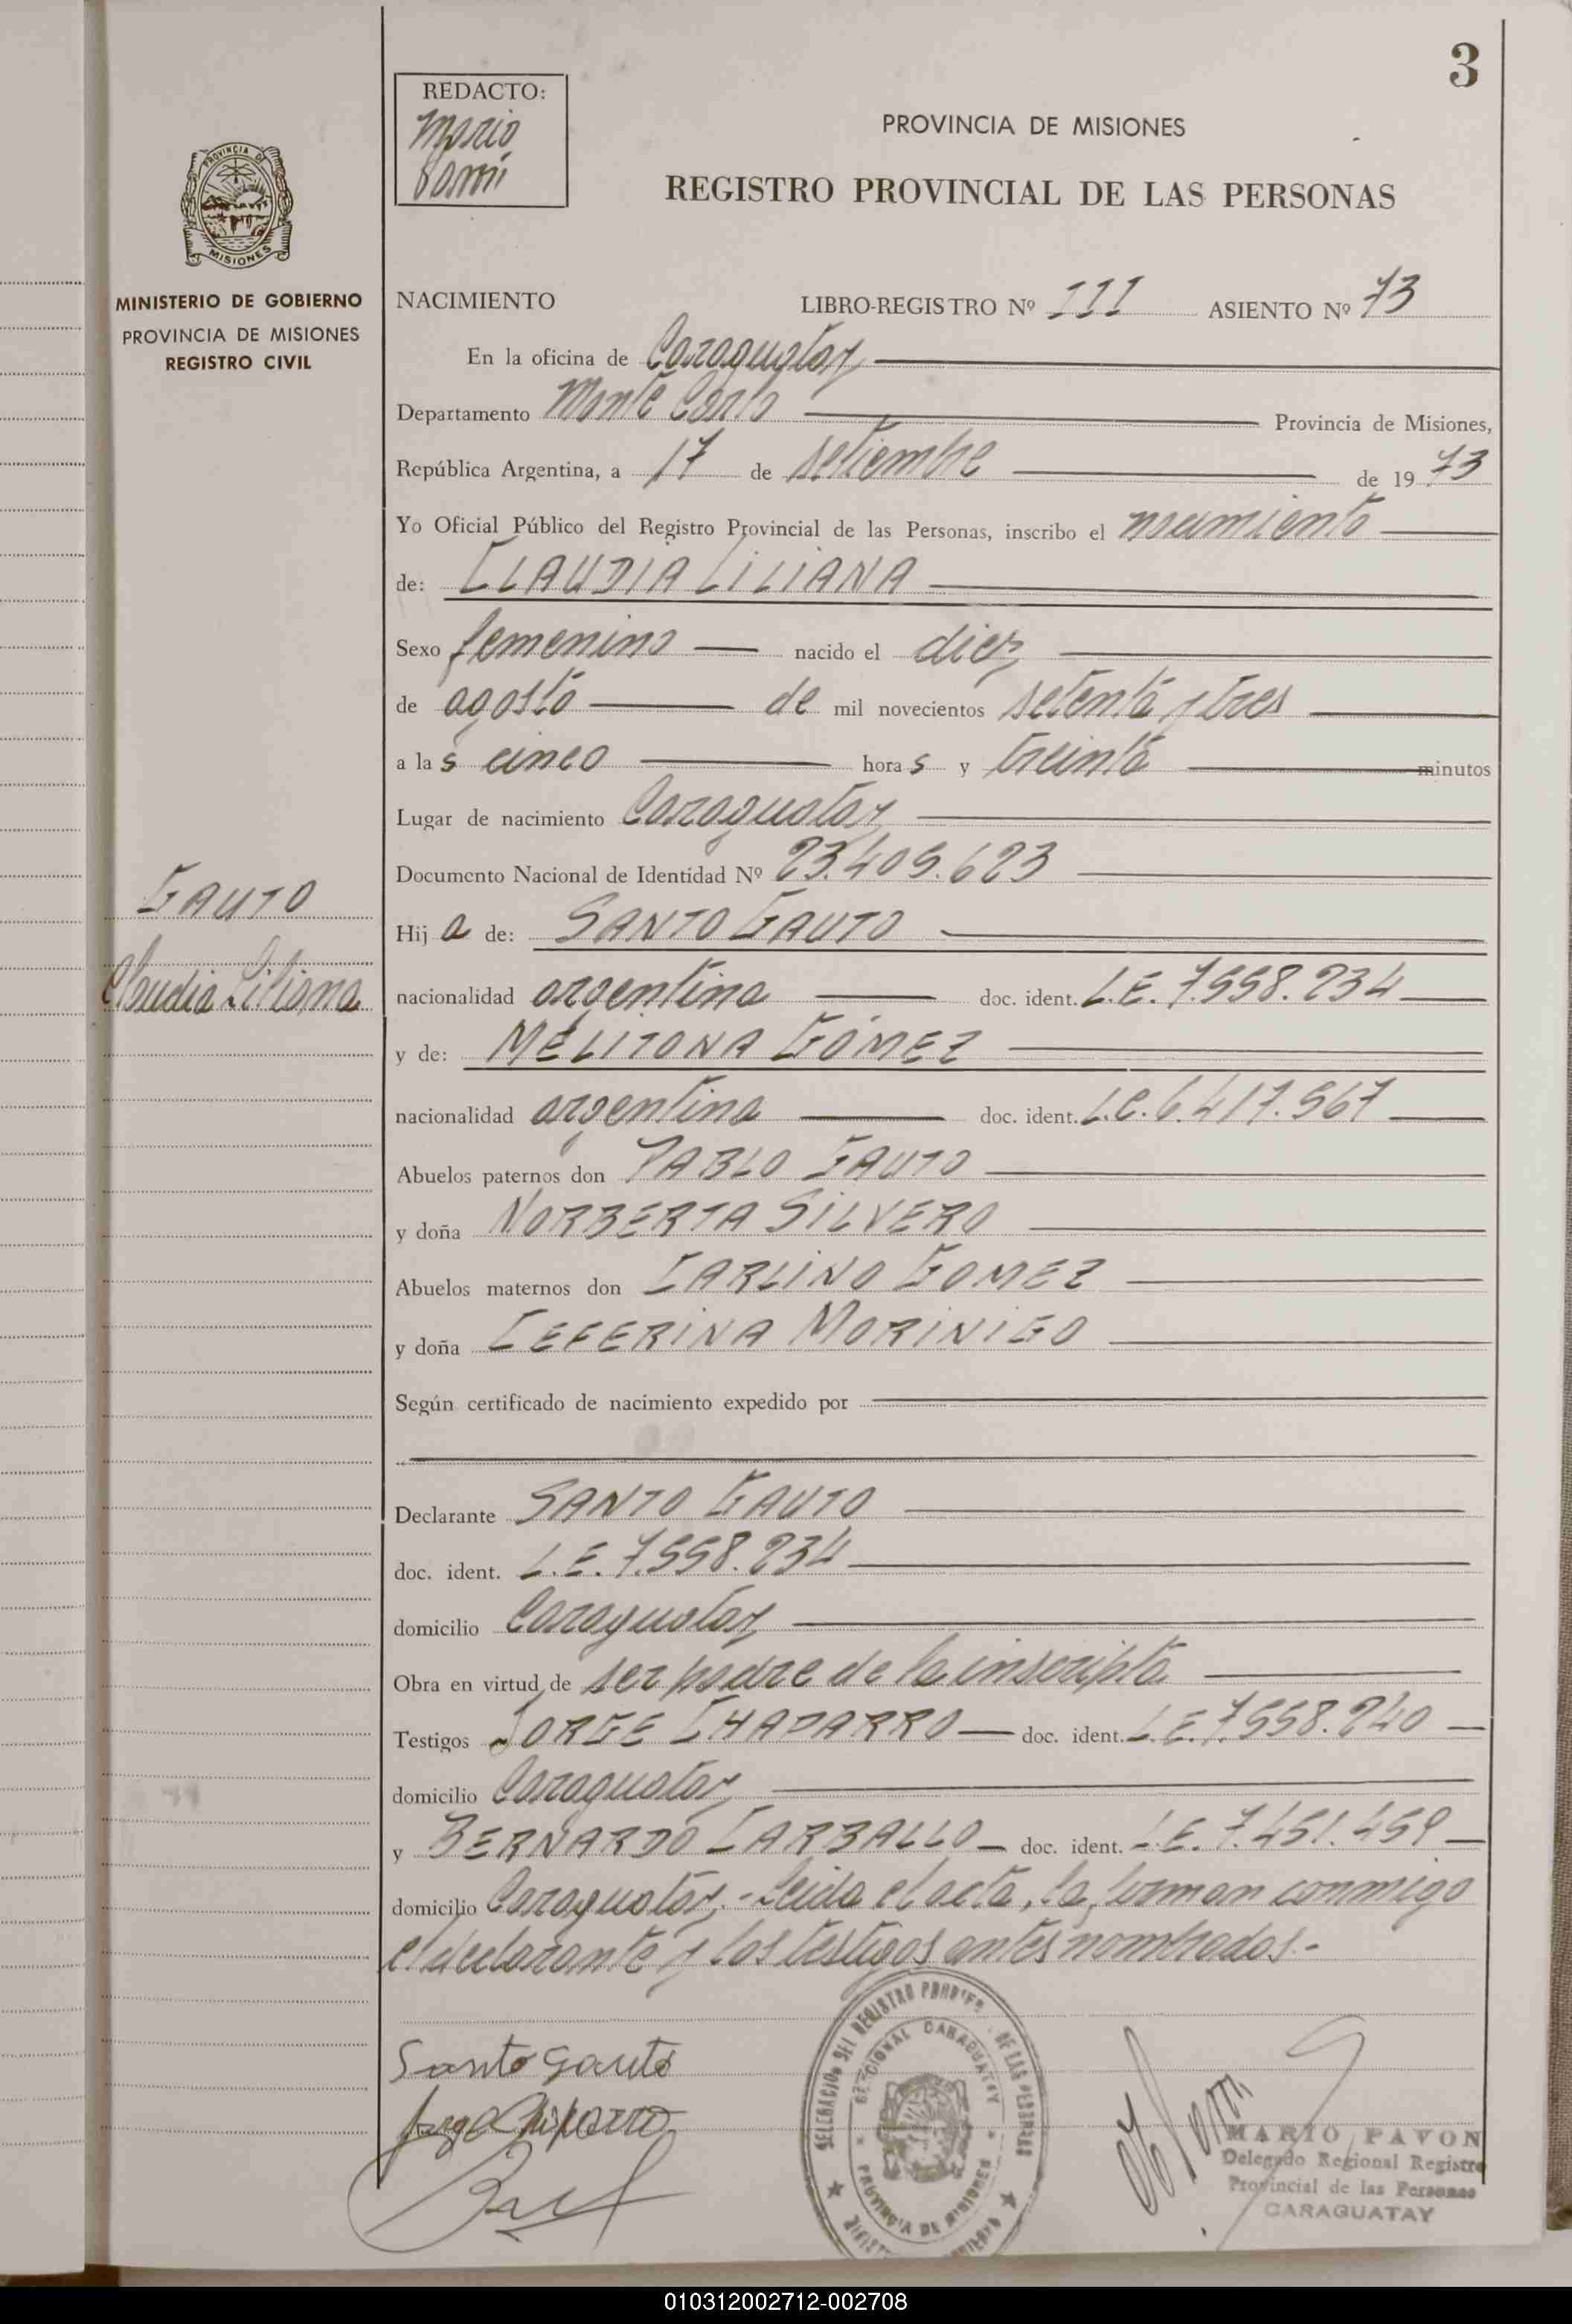 3
REDACTO:
Mario
Pavón
PROVINCIA DE MISIONES
REGISTRO PROVINCIAL DE LAS PERSONAS
PROVINCIA DE
MISIONES
MINISTERIO DE GOBIERNO
PROVINCIA DE MISIONES
REGISTRO CIVIL
NACIMIENTO LIBRO-REGISTRO Nº III ASIENTO Nº 73
En la oficina de Caraguatay
Departamento Monte Carlo Provincia de Misiones,
República Argentina, a 17 de setiembre de 1973
Yo Oficial Público del Registro Provincial de las Personas, inscribo el nacimiento
de: CLAUDIA LILIANA
Sexo femenino nacido el diez
de agosto de mil novecientos setenta y tres
a las cinco horas y treinta minutos
Lugar de nacimiento Caraguatay
Documento Nacional de Identidad Nº 23.409.623
GAUTO
Claudia Liliana
Hija de: SANTO GAUTO
nacionalidad argentina doc. ident. L.E. 7.558.234
y de: MELITONA GÓMEZ
nacionalidad argentina doc. ident. L.C. 6.417.567
Abuelos paternos don PABLO GAUTO
y doña NORBERTA SILVERO
Abuelos maternos don CARLINO GOMEZ
y doña CEFERINA MORINIGO
Según certificado de nacimiento expedido por
Declarante SANTO GAUTO
doc. ident. L.E. 7.558.234
domicilio Caraguatay
Obra en virtud de ser padre de la inscripta
Testigos JORGE CHAPARRO doc. ident. L.E. 7.558.240
domicilio Caraguatay
y BERNARDO CARBALLO doc. ident. L.E. 7.451.459
domicilio Caraguatay.- Leida el acta, la firman conmigo
el declarante y los testigos antes nombrados.-
Santo Gauto
Jorge Chaparro
DELEGACION DEL REGISTRO PROVINCIAL DE LAS PERSONAS
SECCIONAL CARAGUATAY
PROVINCIA DE MISIONES
MARIO PAVON
Delegado Regional Registro
Provincial de las Personas
CARAGUATAY
010312002712-002708